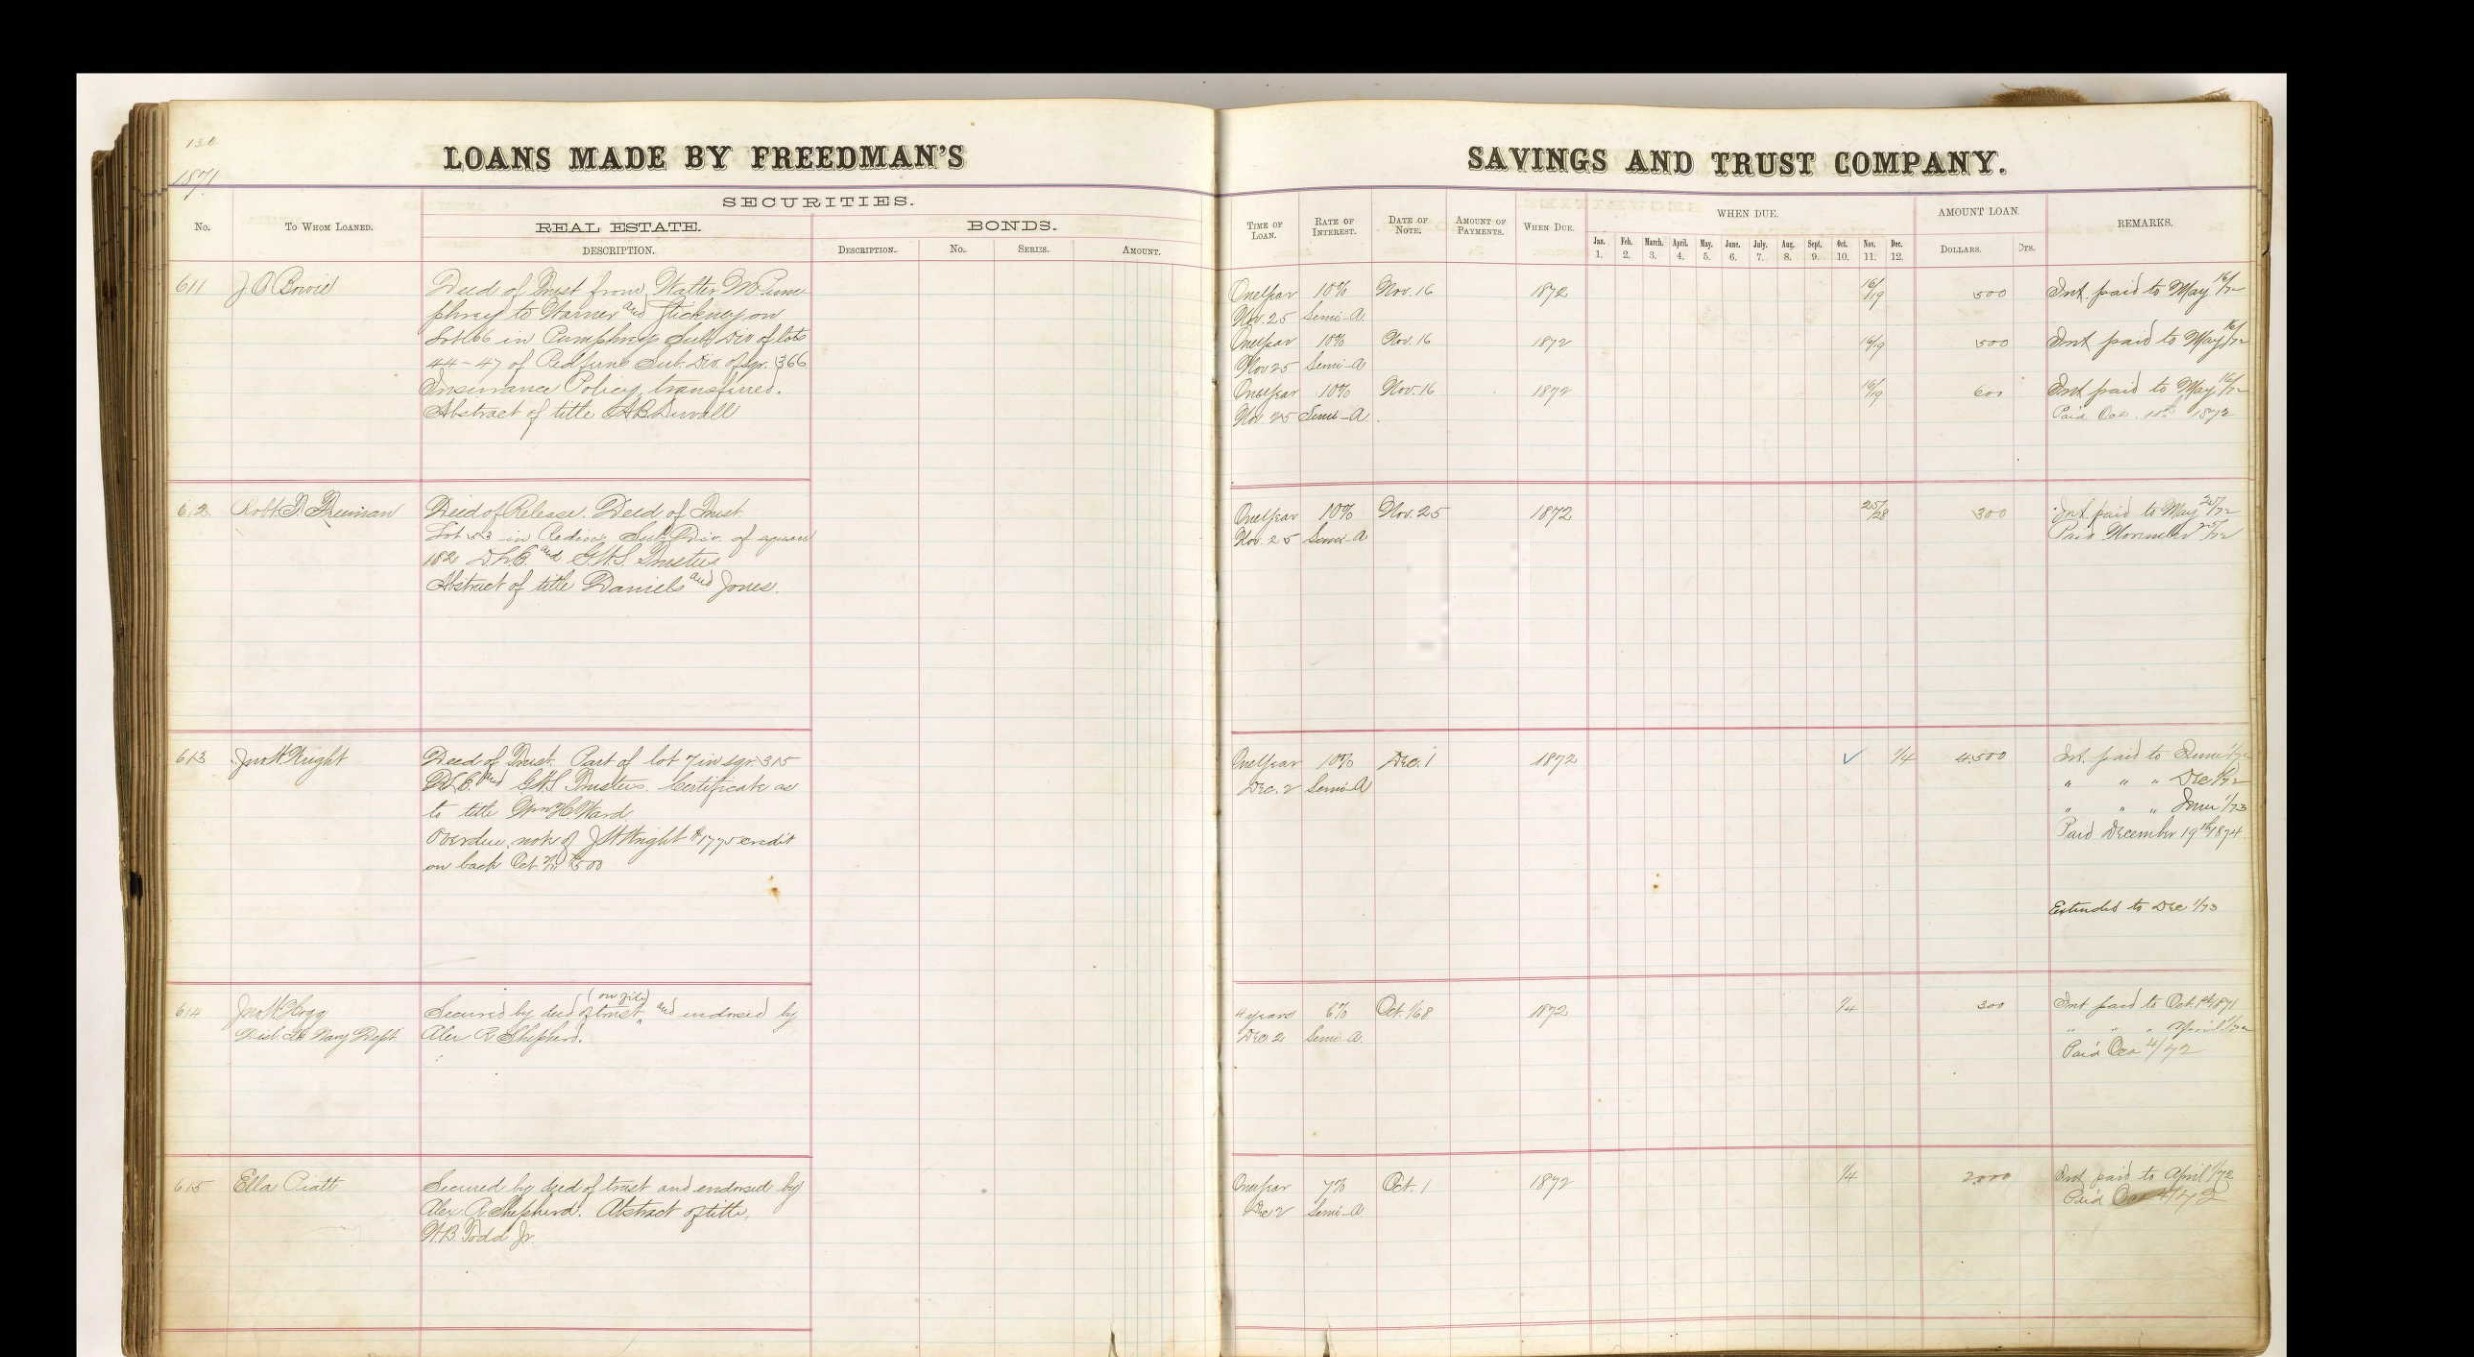 130
1871
LOANS MADE BY FREEDMAN'S
SAVINGS AND TRUST COMPANY.
SECURITIES.
No.
TO WHOM LOANED.
REAL ESTATE.
BONDS.
DESCRIPTION.
DESCRIPTION.
No.
SERIES.
AMOUNT.
TIME OF LOAN.
RATE OF INTEREST.
DATE OF NOTE.
AMOUNT OF PAYMENTS.
WHEN DUE.
WHEN DUE.
Jan. Feb. March. April. May. June. July. Aug. Sept. Oct. Nov. Dec.
1. 2. 3. 4. 5. 6. 7. 8. 9. 10. 11. 12.
AMOUNT LOAN.
DOLLARS. CTS.
REMARKS.
611 J O Bowie
Deed of Trust from Walter M Pum
phrey to Warner and Stickney on
Lot 66 in Pumphreys Sub Div of lots
44-47 of Sub. Div. of sqr. 366
Insurance Policy transfered.
Abstract of title Duvall
One Year 10% Nov. 16 1872 16/19 500 Int. paid to May 16/72
Nov. 25 Semi-A
One Year 10% Nov. 16 1872 16/19 500 Int. paid to May 16/72
Nov 25 Semi-A
One Year 10% Nov. 16 1872 16/19 600 Int. paid to May 16/72
Nov. 25 Semi-A. Paid 1872
612 Robt Freeman
Deed of Release. Deed of Trust
Lot 53 in Sub Div. of square
182 and G.W.S. Trustees
Abstract of title Daniels and Jones.
One Year 10% Nov. 25 1872 25/28 300 Int. paid to May 25/72
Nov. 25 Semi-A Paid November 25/72
613 Jno W Wright
Deed of Trust. Part of lot 7 in sqr. 315
and GWS Trustees. Certificate as
to title Wm H Ward
Overdue note of J W Wright $1775 credit
on back Oct $500
One Year 10% Dec. 1 1872 ✓ 1/4 4500 Int. paid to June 1/72
Dec. 2 Semi-A " " " Dec 1/72
" " " June 1/73
Paid December 19th 1874
Extended to Dec 1/73
614 Jno H
Navy Dept
Secured by deed of trust (on file) and endorsed by
Alex R Shepherd.
4 years 6% Oct. 1/68 1872 1/4 300 Int paid to Oct. 1st 1871
Dec 2 Semi-A. " " " April 1/72
Paid 4/72
615 Ella Piatt
Secured by deed of trust and endorsed by
Alex. R Shepherd. Abstract of title,
W.B. Todd Jr.
One Year 7% Oct. 1 1872 1/4 2000 Int paid to April 1/72
Dec 2 Semi-A Paid